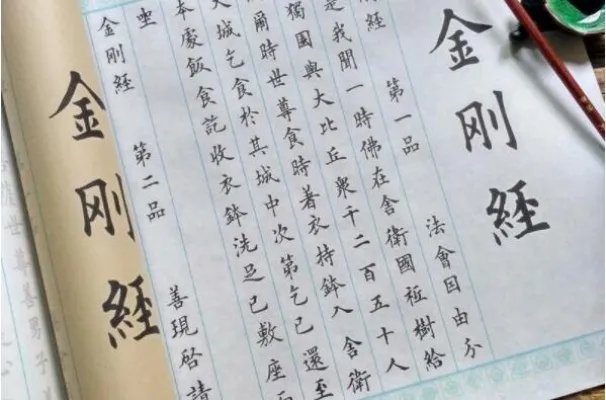 金刚經
刚經 第一品 法會因由分
是我聞一時佛在舍衛國祗樹給
獨國與大比丘衆千二百五十人
爾時世尊食時着衣持鉢入舍衛
大城乞食於其城中次第乞已還至
本處飯食訖收衣鉢洗足已敷座而
坐
金刚經 第二品 善現啓請
金刚經
世尊善男子